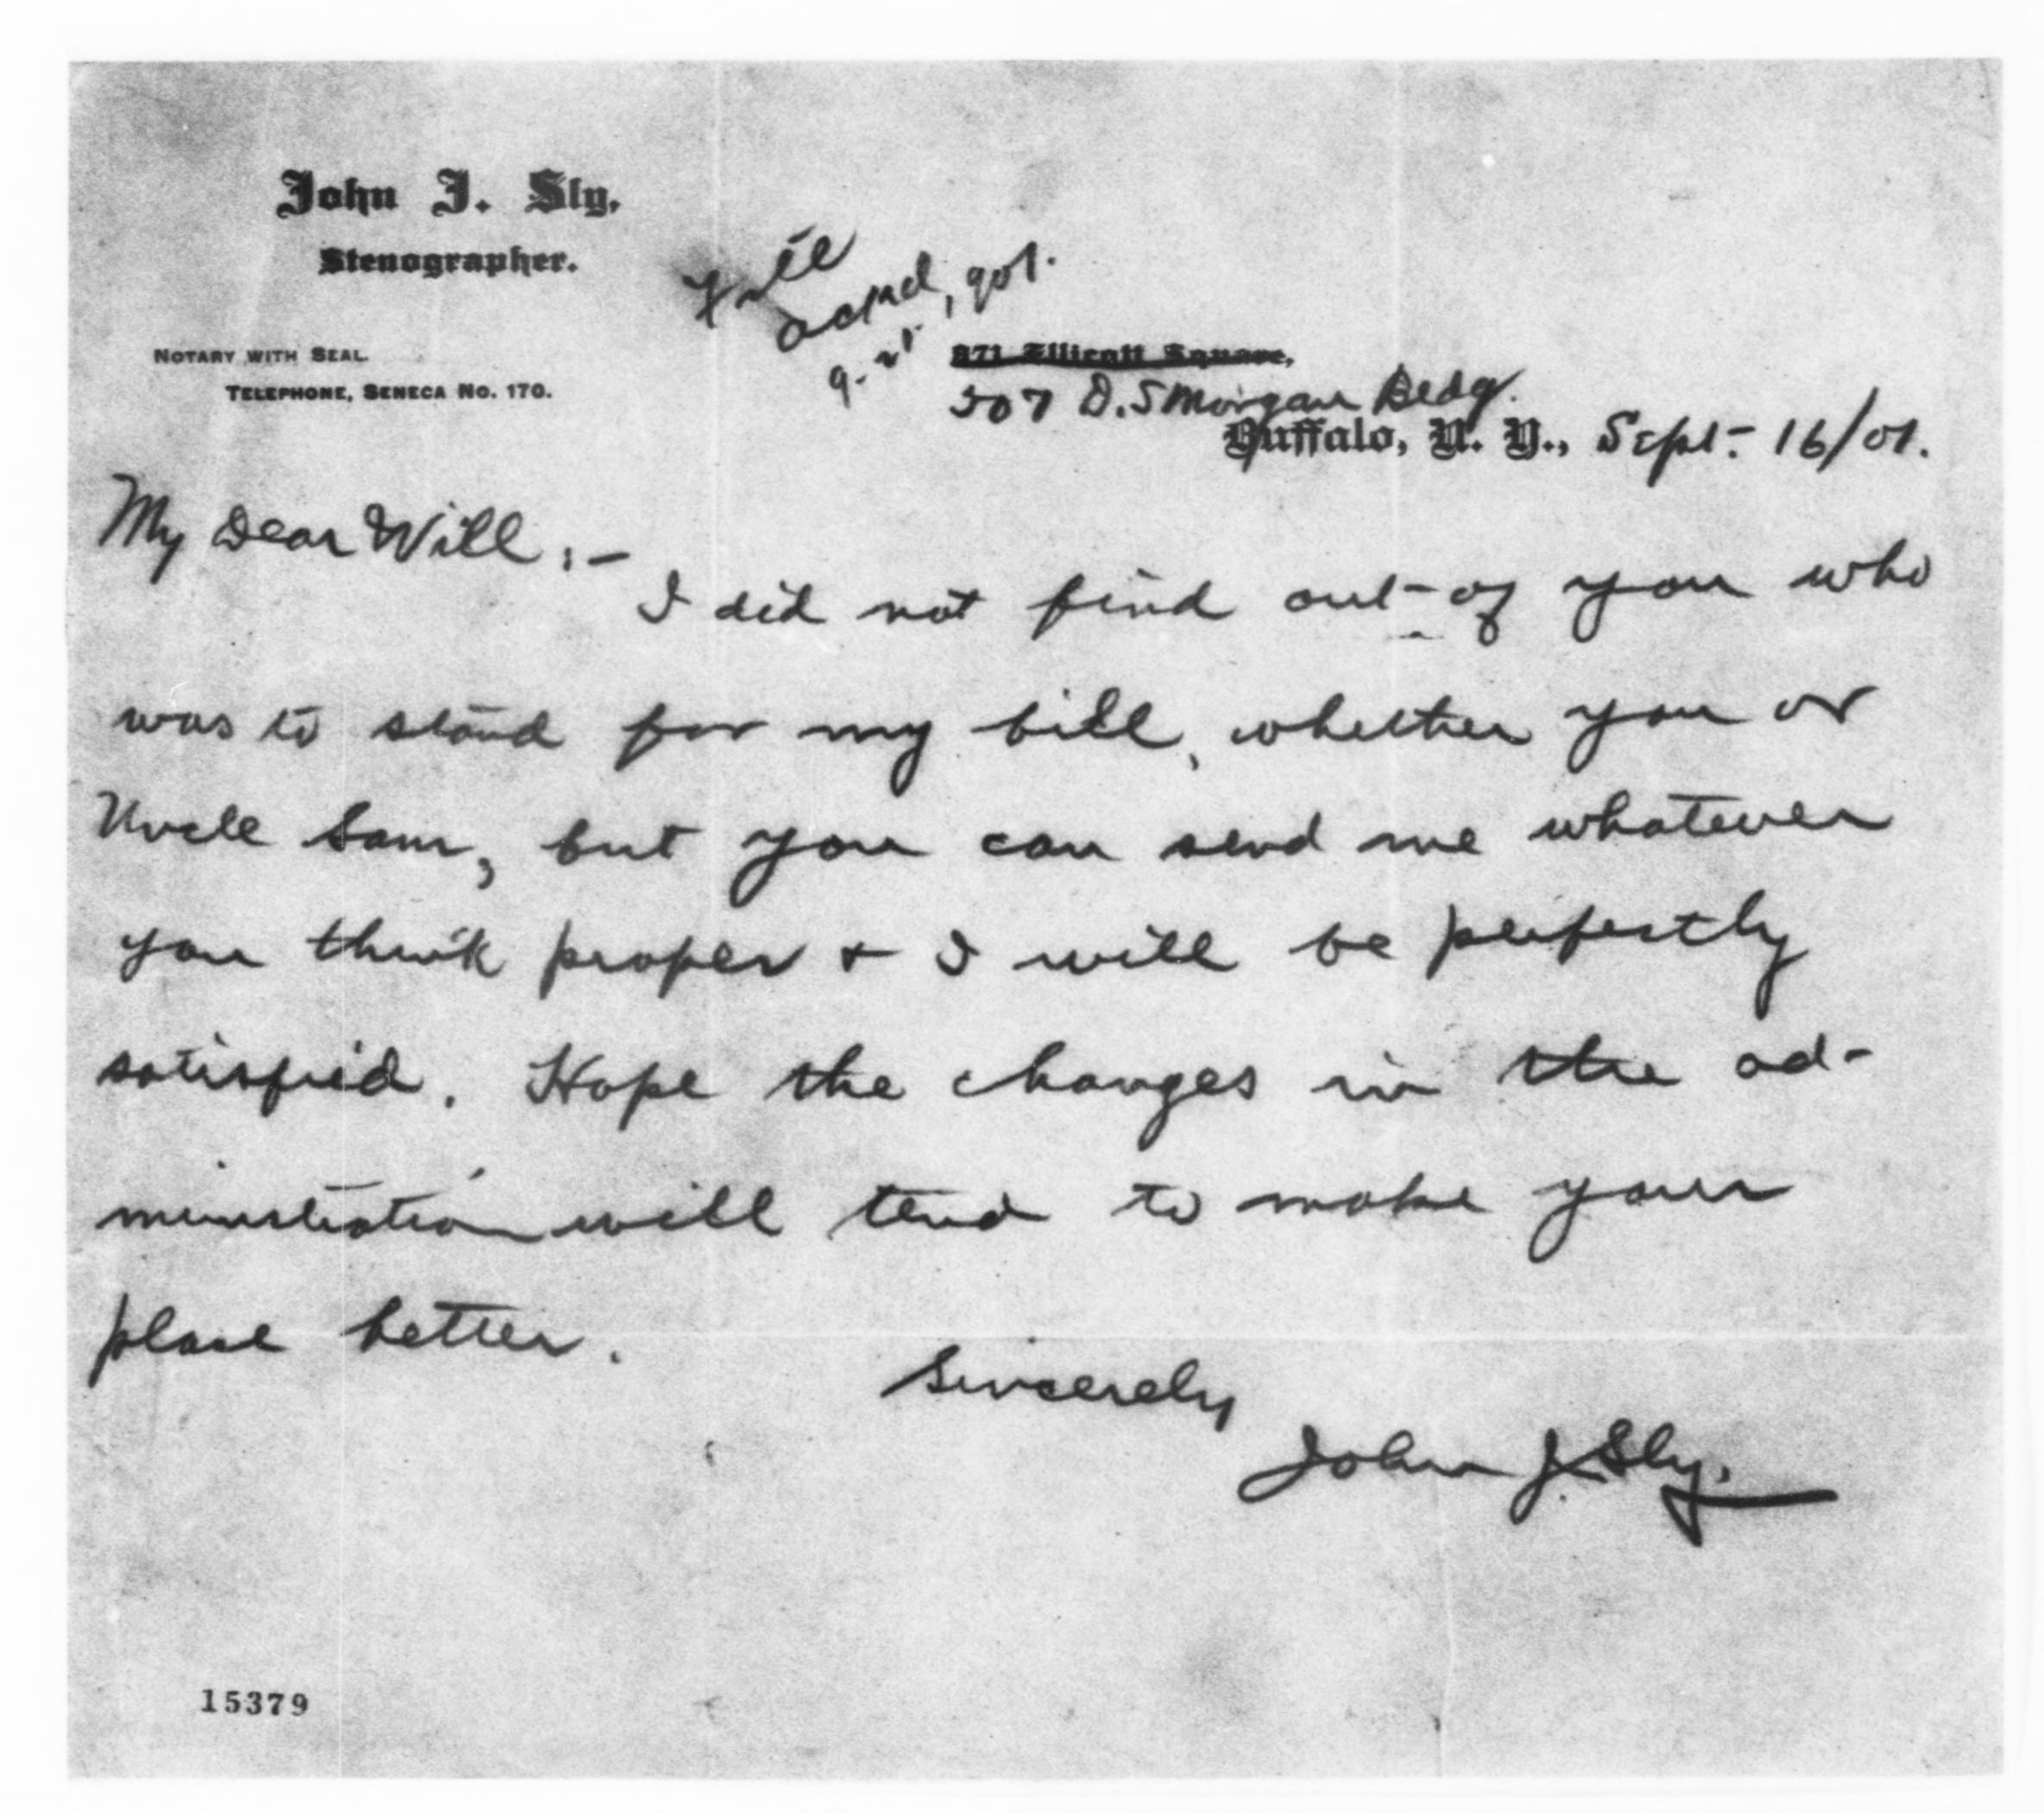 John J. Sly,
Stenographer.
NOTARY WITH SEAL
TELEPHONE, SENECA No. 170.
ackd,
971 Ellicott Square,
507 D. S Morgan Bldg.
Buffalo, N. Y., Sept. 16/01.
My Dear Will:-
I did not find out of you who
was to stand for my bill, whether you or
Uncle Sam, but you can send me whatever
you think proper + I will be perfectly
satisfied. Hope the changes in the ad-
ministration will tend to make your
place better.
Sincerely
John J. Sly.
15379